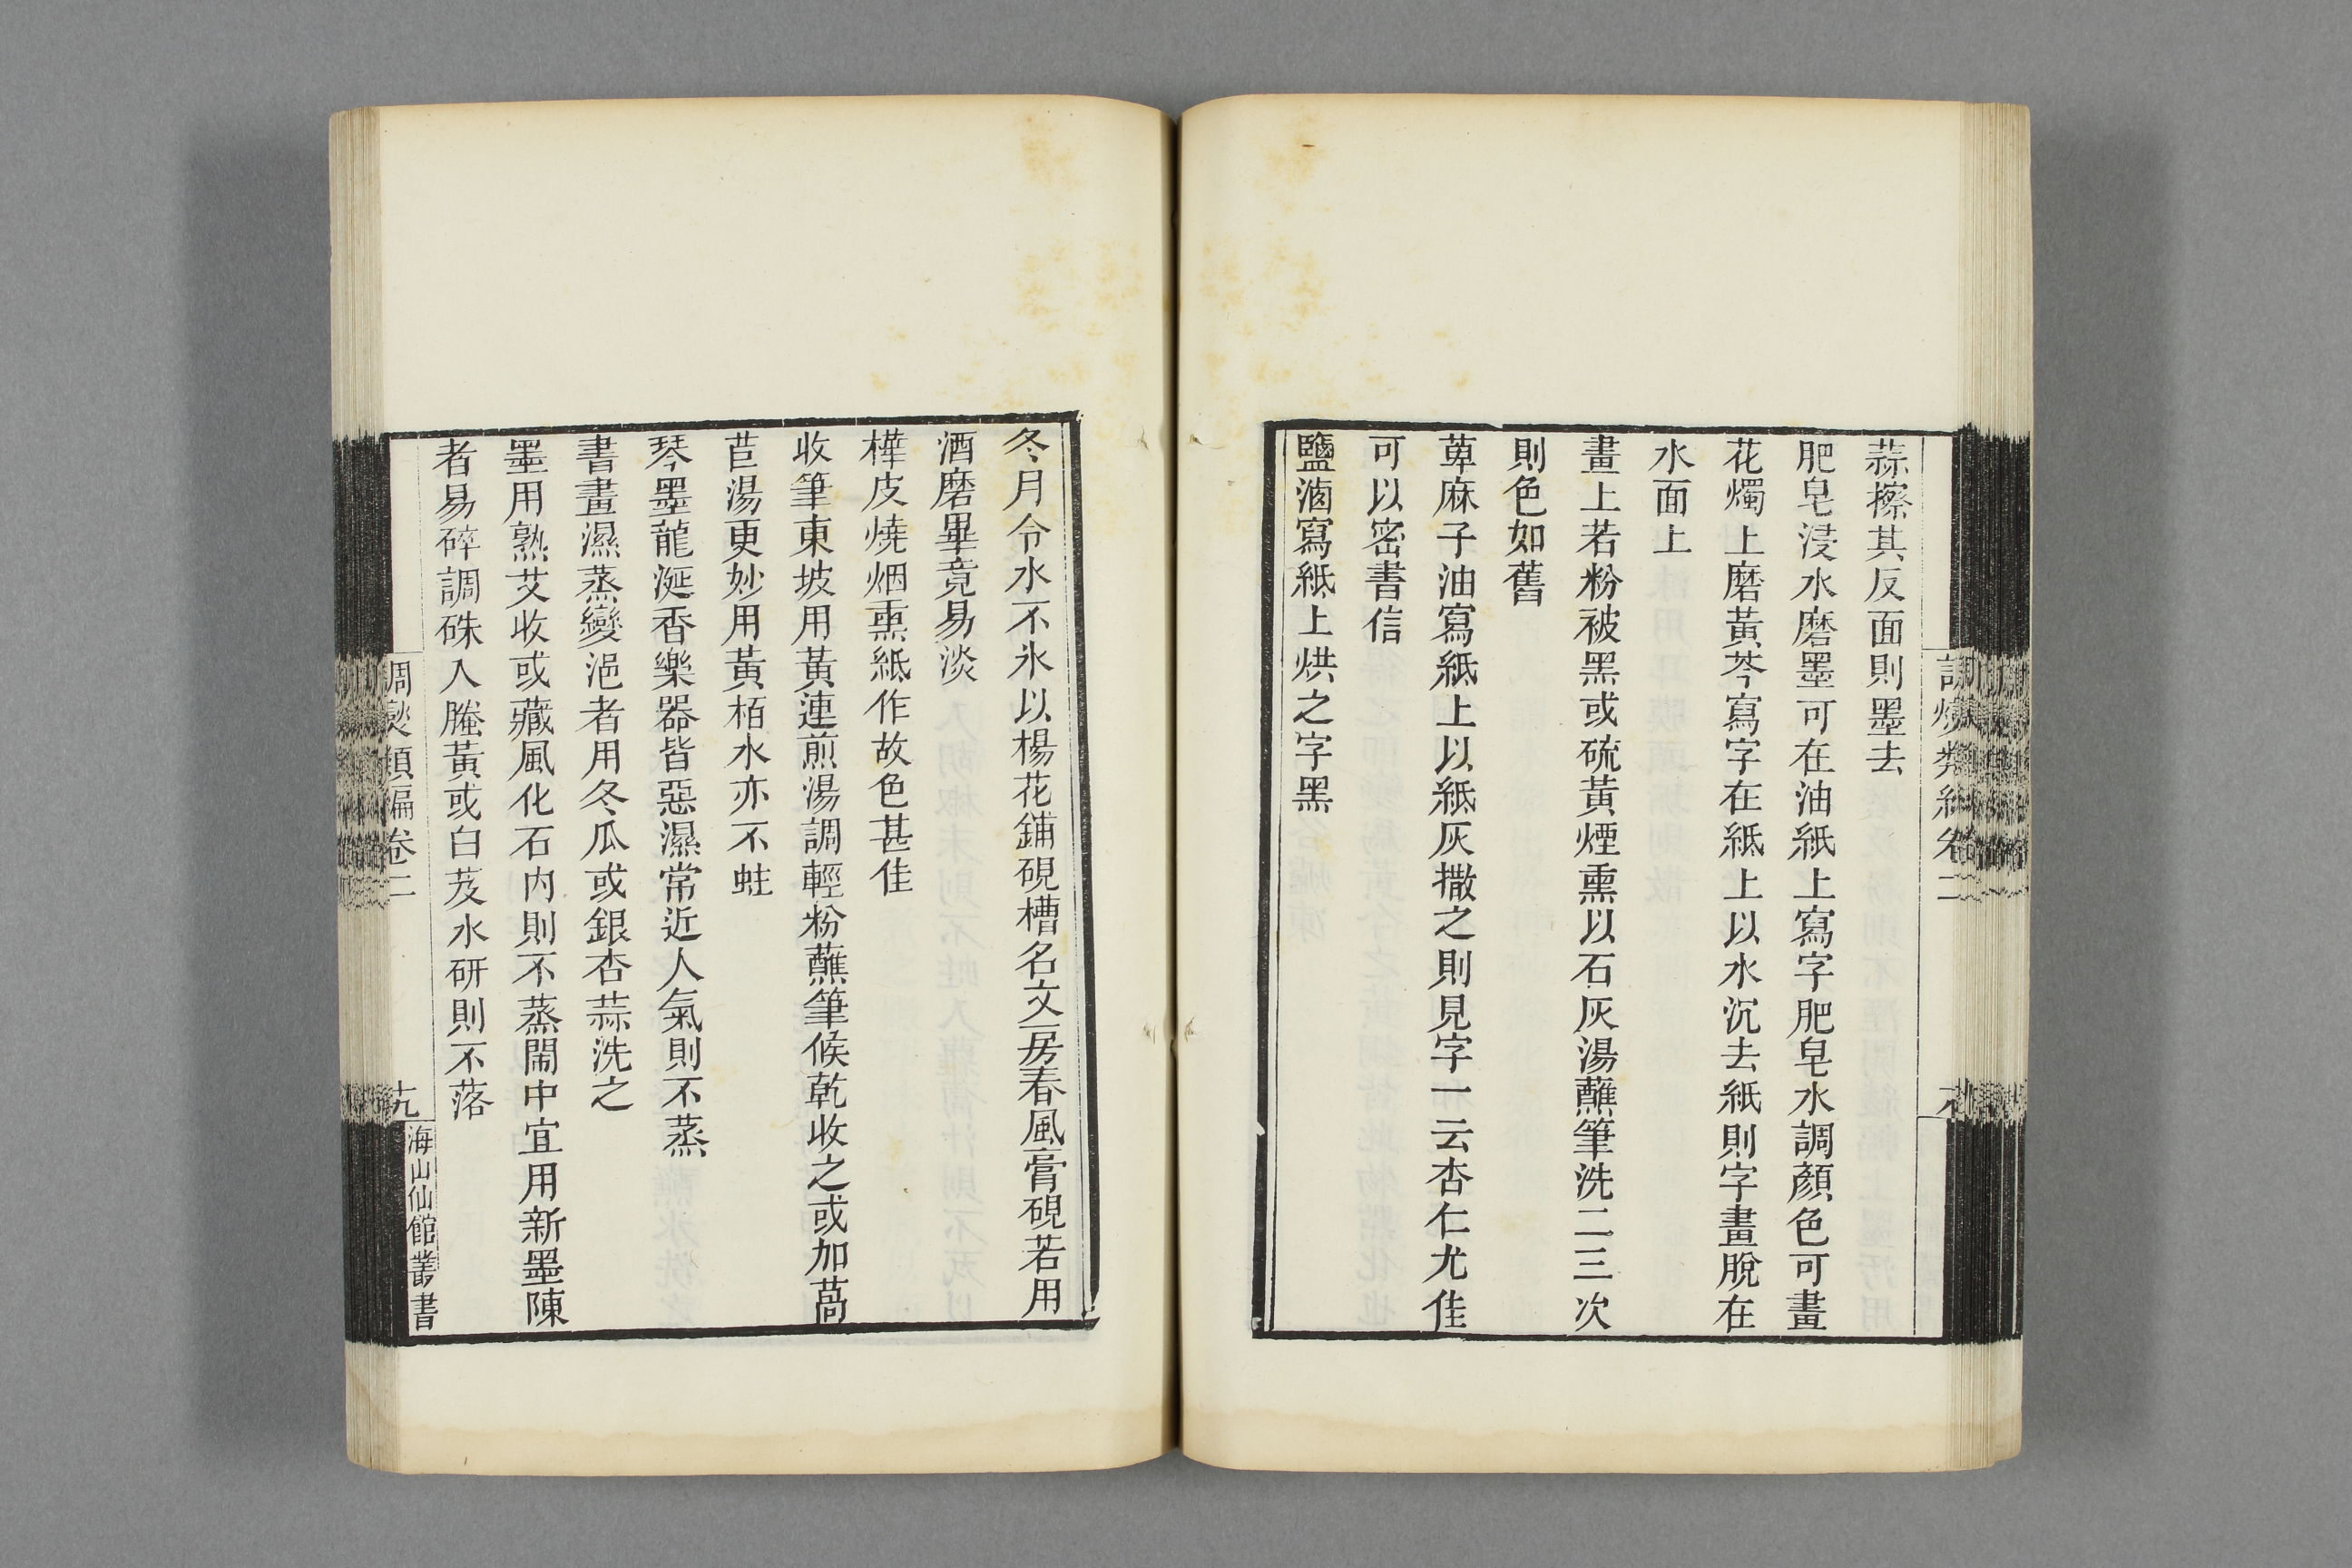 蒜擦其反面則墨去
肥皂浸水磨墨可在油紙上寫字肥皂水調顏色可畫
花燭上磨黃芩寫字在紙上以水沉去紙則字畫脫在
水面上
畫上若粉被黑或硫黃煙熏以石灰湯蘸筆洗二三次
則色如舊
萆麻子油寫紙上以紙灰撒之則見字一云杏仁尤佳
可以密書信
鹽滷寫紙上烘之字黑
冬月令水不氷以楊花鋪硯槽名文房春風膏硯若用
酒磨畢竟易淡
樺皮燒烟熏紙作故色甚佳
收筆東坡用黃連煎湯調輕粉蘸筆候乾收之或加萵
苣湯更妙用黃栢水亦不蛀
琴墨龍涎香樂器皆惡濕常近人氣則不蒸
書畫濕蒸變浥者用冬瓜或銀杏蒜洗之
墨用熟艾收或藏風化石内則不蒸閙中宜用新墨陳
者易碎調硃入騰黃或白芨水研則不落
調燮類編卷二
海山仙館叢書